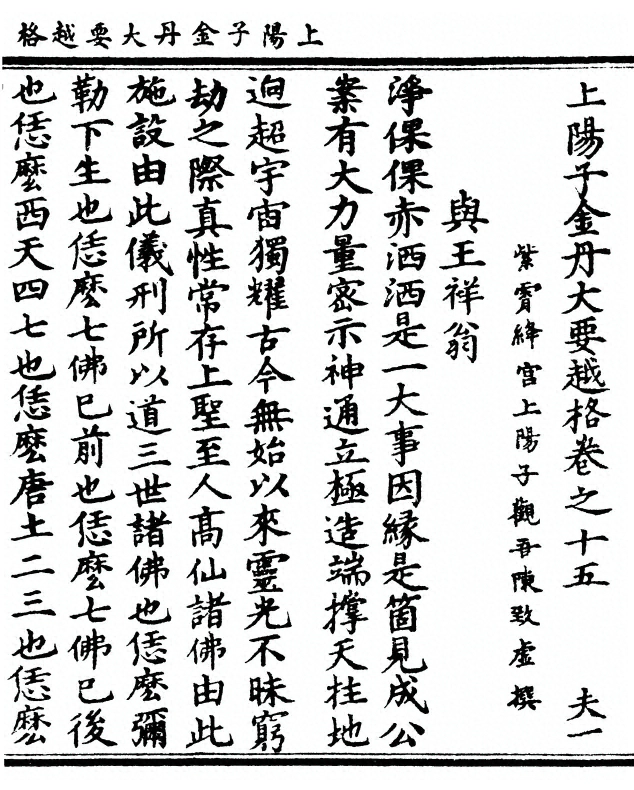 上陽子金丹大要越格
上陽子金丹大要越格卷之十五 夫一
紫霄絳宮上陽子觀吾陳致虛撰
與王祥翁
淨倮倮赤洒洒是一大事因緣是箇見成公
案有大力量密示神通立極造端撑天拄地
逈超宇宙獨耀古今無始以來靈光不昧窮
劫之際真性常存上聖至人高仙諸佛由此
施設由此儀刑所以道三世諸佛也恁麼彌
勒下生也恁麼七佛已前也恁麼七佛已後
也恁麼西天四七也恁麼唐土二三也恁麼